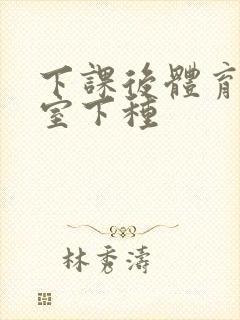 下課後體育
室下種
林秀濤